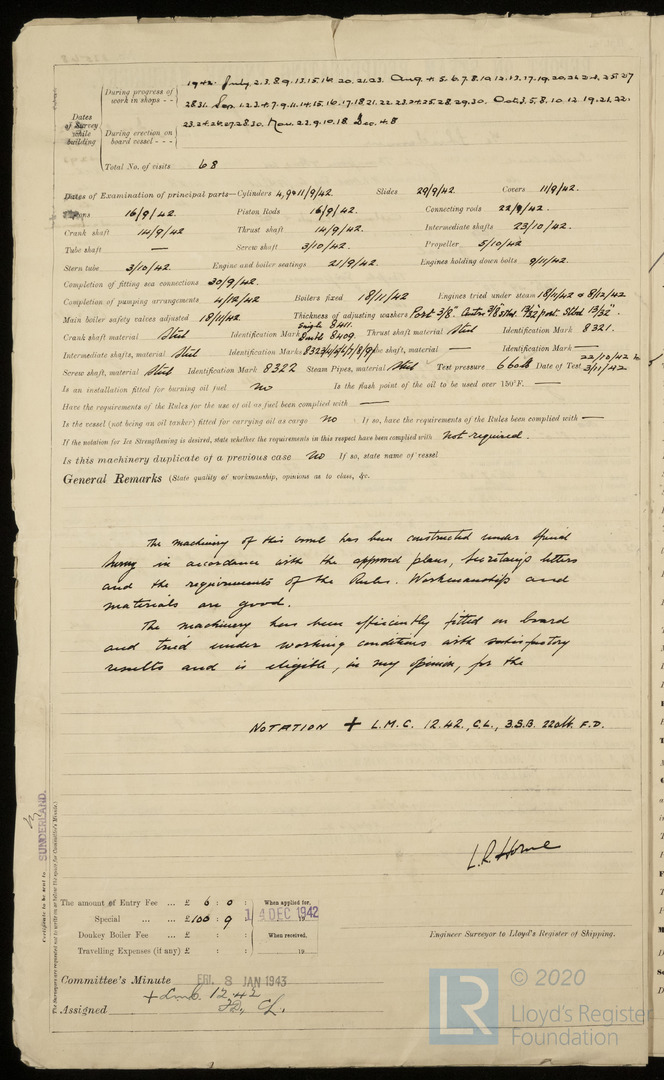 1942. July. 2.3.8.9.13.15.16.20.21.23. Aug. 4.5.6.7.8.10.12.13.17.19.20.24.25.27
During progress of work in shops - -
28.31. Sep. 1.2.3.4.7.9.11.14.15.16.17.18.21.22.23.24.25.28.29.30. Oct. 3.5.8.10.12.19.21.22.
Dates of Survey while building
During erection on board vessel - - -
23.24.26.27.28.30. Nov. 2.9.10.18. Dec. 4.8
Total No. of visits 68
Dates of Examination of principal parts—Cylinders 4,9&11/9/42. Slides 29/9/42. Covers 11/9/42.
16/9/42. Piston Rods 16/9/42. Connecting rods 22/9/42.
Crank shaft 14/9/42 Thrust shaft 14/9/42. Intermediate shafts 23/10/42.
Tube shaft — Screw shaft 3/10/42. Propeller 5/10/42
Stern tube 3/10/42. Engine and boiler seatings 21/9/42. Engines holding down bolts 9/11/42.
Completion of fitting sea connections 30/9/42.
Completion of pumping arrangements 4/12/42 Boilers fixed 18/11/42 Engines tried under steam 18/11/42 & 8/12/42
Main boiler safety valves adjusted 18/11/42. Thickness of adjusting washers Port 3/8"
Crank shaft material Steel Identification Mark 8411. 8409. Thrust shaft material Steel Identification Mark 8321.
Intermediate shafts, material Steel Identification Marks Tube shaft, material — Identification Mark —
Screw shaft, material Steel Identification Mark 8322 Steam Pipes, material Steel Test pressure 660 lb Date of Test 22/10/42 3/11/42
Is an installation fitted for burning oil fuel no Is the flash point of the oil to be used over 150°F. —
Have the requirements of the Rules for the use of oil as fuel been complied with —
Is the vessel (not being an oil tanker) fitted for carrying oil as cargo no If so, have the requirements of the Rules been complied with —
If the notation for Ice Strengthening is desired, state whether the requirements in this respect have been complied with Not required.
Is this machinery duplicate of a previous case no If so, state name of vessel
General Remarks (State quality of workmanship, opinions as to class, &c.
The machinery of this vessel has been constructed under Special
Survey in accordance with the approved plans, Secretary's letters
and the requirements of the Rules. Workmanship and
materials are good.
The machinery has been efficiently fitted on board
and tried under working conditions with satisfactory
results and is eligible, in my opinion, for the
NOTATION + L.M.C. 12.42., C.L., 3.S.B. 220 lb. F.D.
L.R. Horne
SUNDERLAND.
Certificate to be sent to
(The Surveyors are requested not to write on or below the space for Committee's Minute.)
The amount of Entry Fee ... £ 6 : 0 : When applied for,
Special ... ... £ 100 : 9 14 DEC 1942
Donkey Boiler Fee ... £ : : When received,
Travelling Expenses (if any) £ : : 19
Engineer Surveyor to Lloyd's Register of Shipping.
Committee's Minute FRI. 8 JAN 1943
+ Lmc. 12 42
Assigned FD, CL.
LR © 2020
Lloyd's Register
Foundation